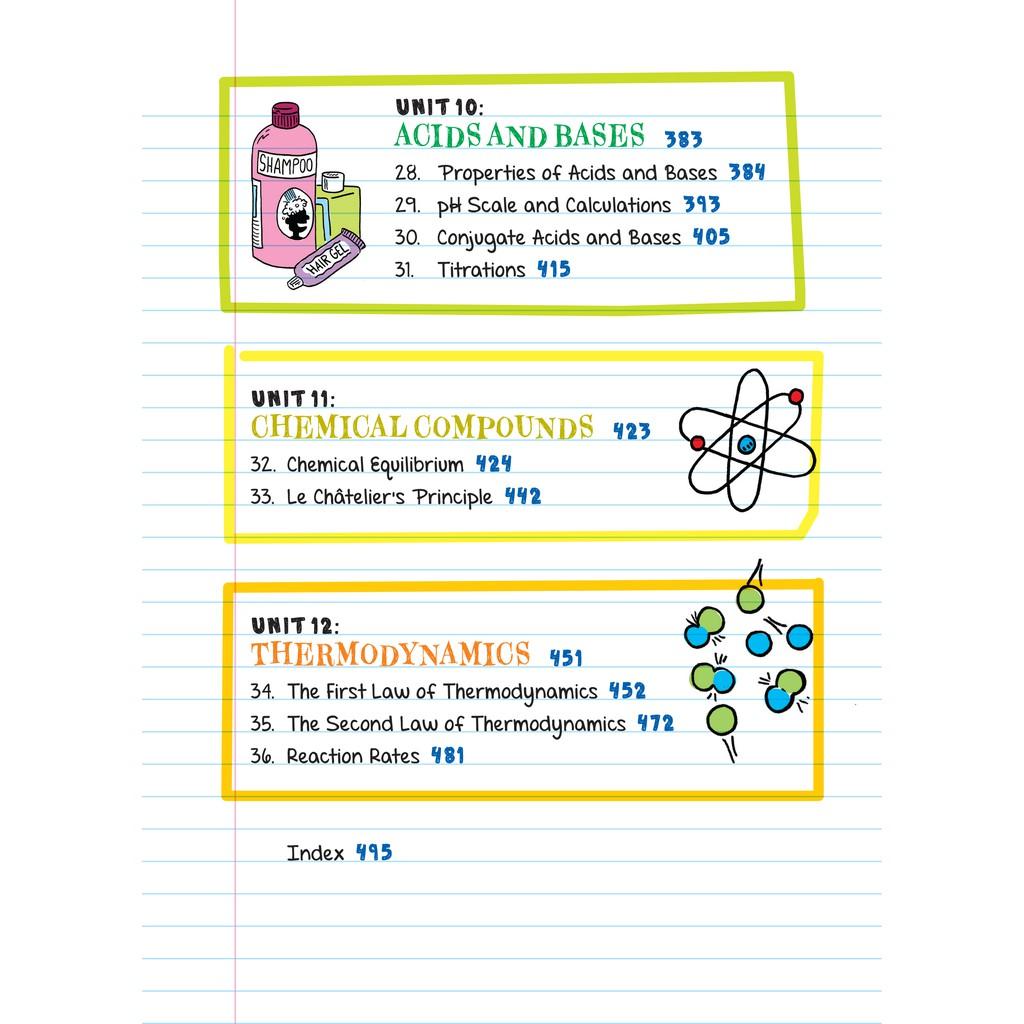 SHAMPOO
HAIR GEL
UNIT 10:
ACIDS AND BASES 383
28. Properties of Acids and Bases 384
29. pH Scale and Calculations 393
30. Conjugate Acids and Bases 405
31. Titrations 415
UNIT 11:
CHEMICAL COMPOUNDS 423
32. Chemical Equilibrium 424
33. Le Châtelier's Principle 442
UNIT 12:
THERMODYNAMICS 451
34. The First Law of Thermodynamics 452
35. The Second Law of Thermodynamics 472
36. Reaction Rates 481
Index 495